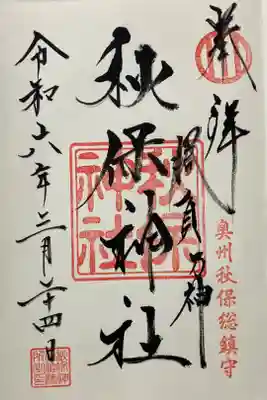 奉拝
奥州秋保総鎮守
秋保神社
秋保神社
令和六年三月二十四日